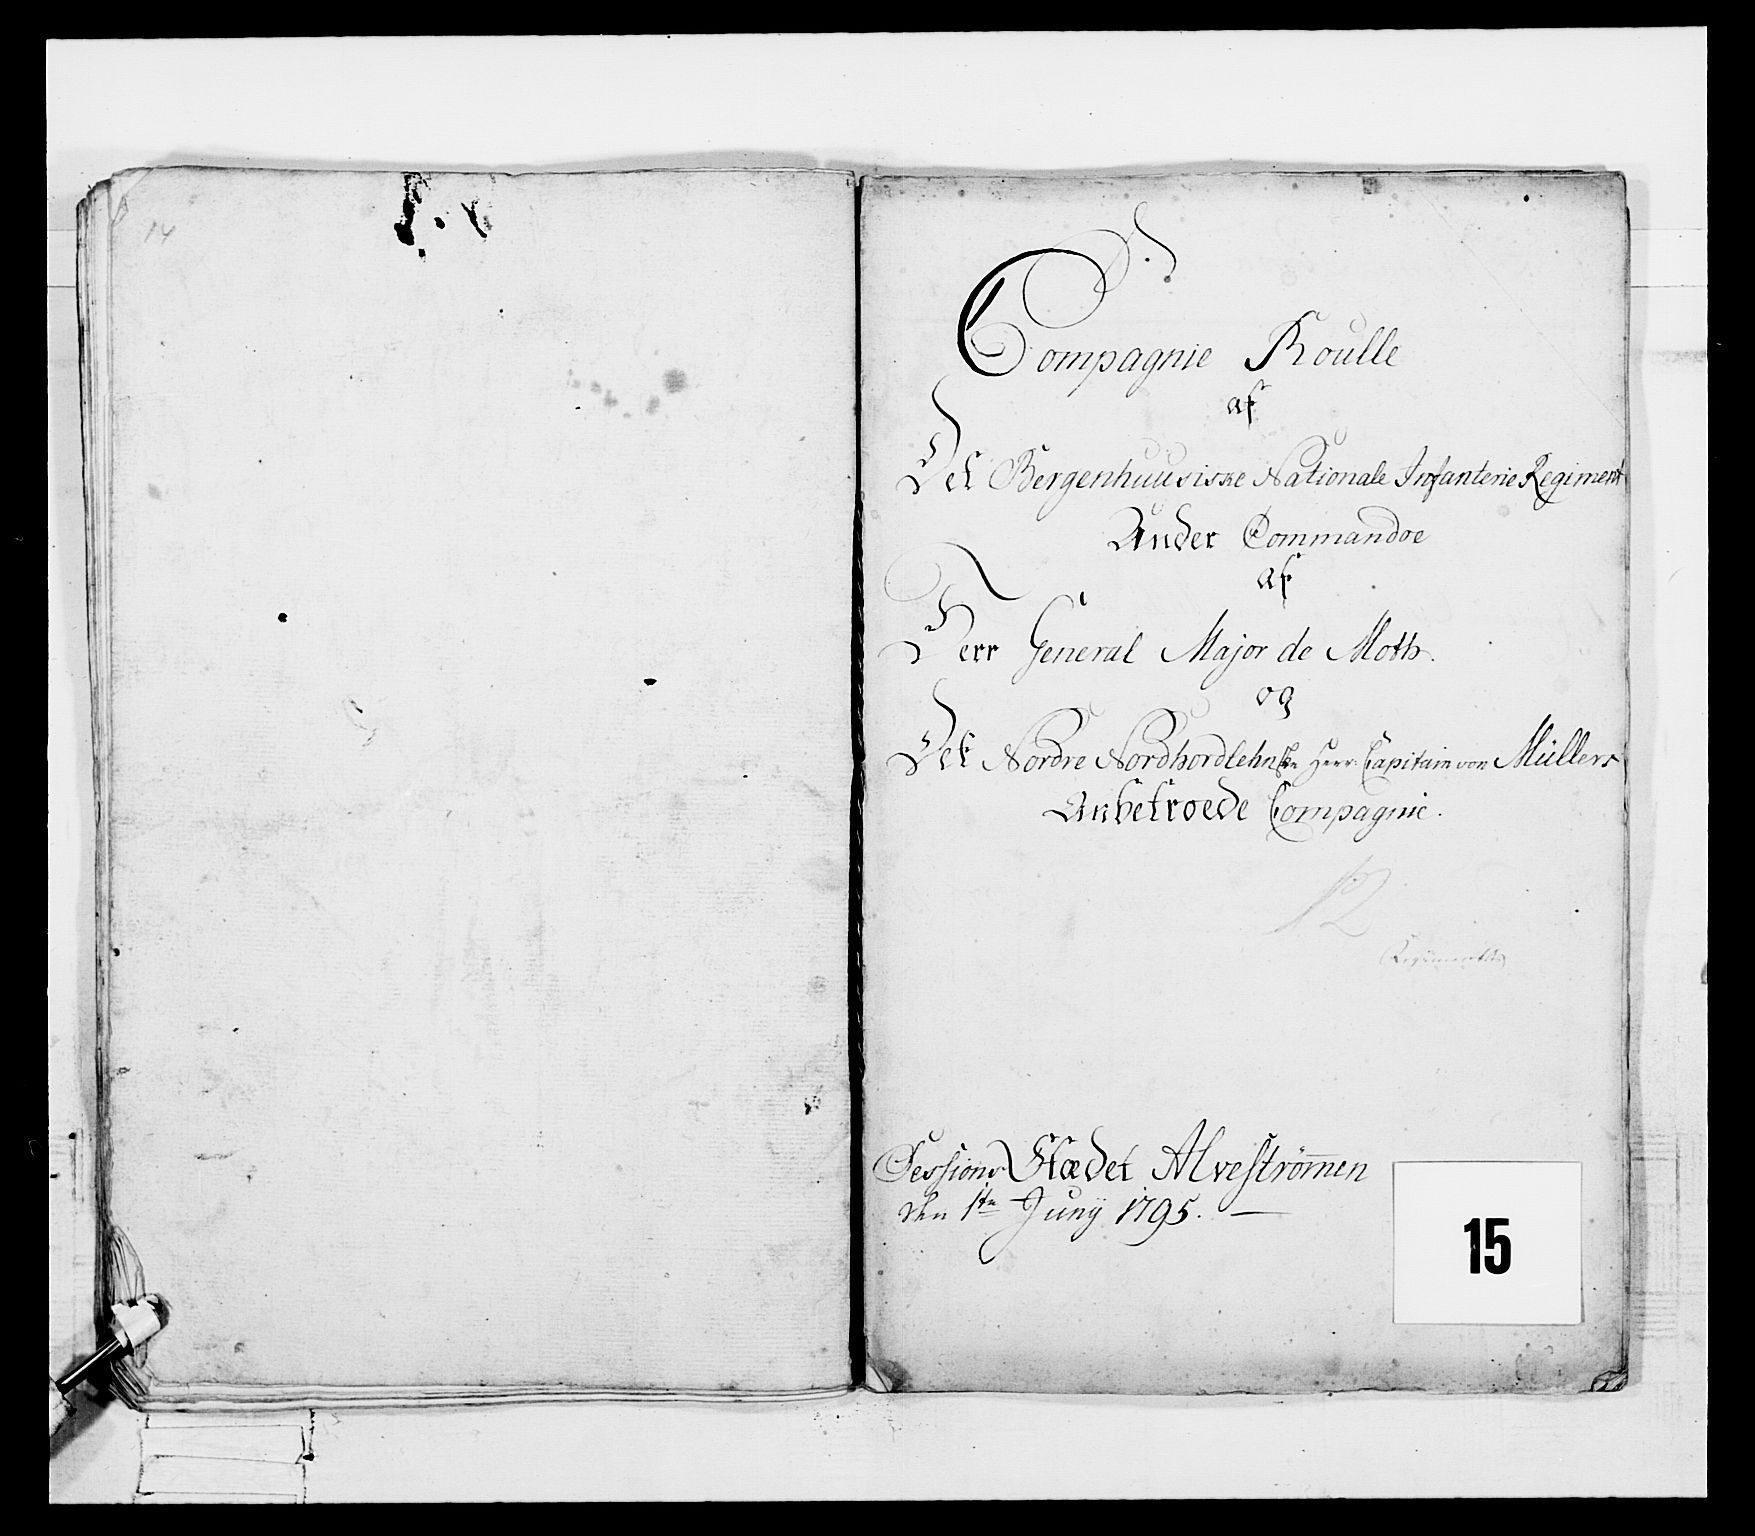 14
Compagnie Roulle
af
Det Bergenhuusiske Nationale Infanterie Regiment
Under Commandoe
af
Herr General Major de Moth.
og
Det Nordre Nordhordlehnske Herr Capitain von Müllers
Anbetroede Compagnie.
12
Regimentets
Sessions Stædet Alveströmen
den 1ste Junÿ 1795. —
15